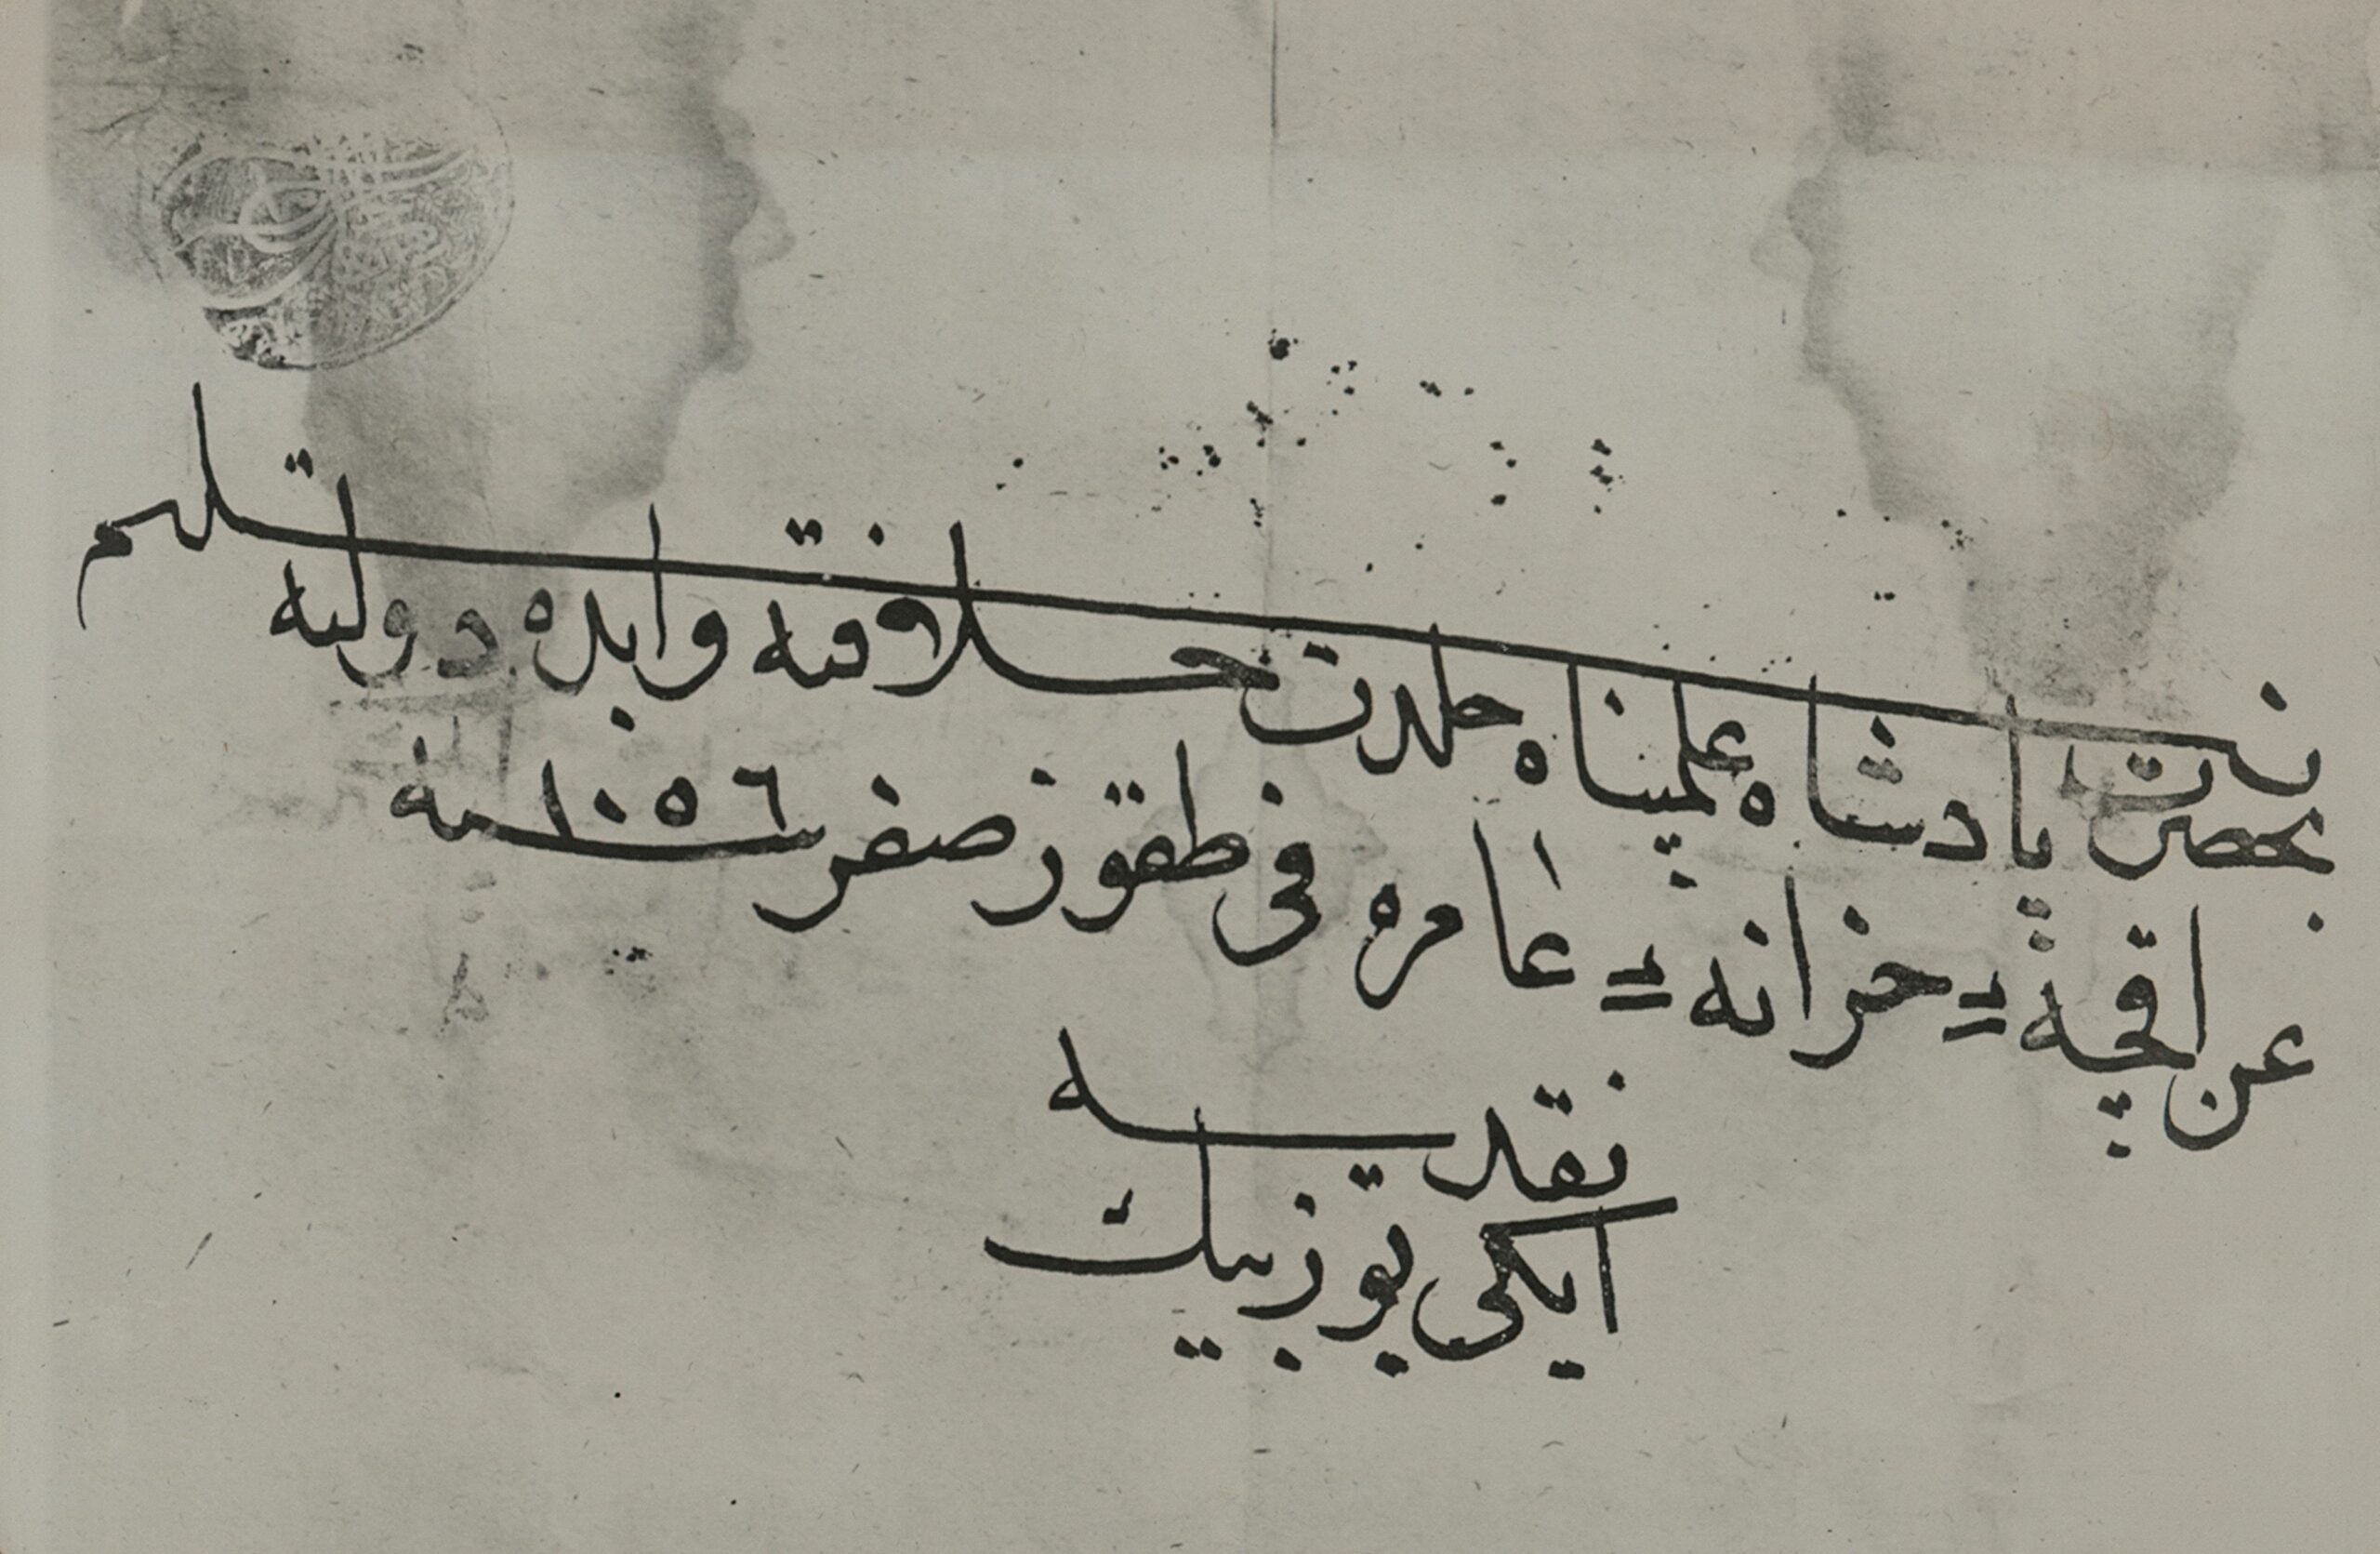 تسليم
بحضرت پادشاه عالمپناه خلدت خلافته وابد دولته
عن اقچهٔ خزانهٔ عامره فی طقوز صفر سنه ١٠٥٦
نقدیه
ایکی یوز بیك